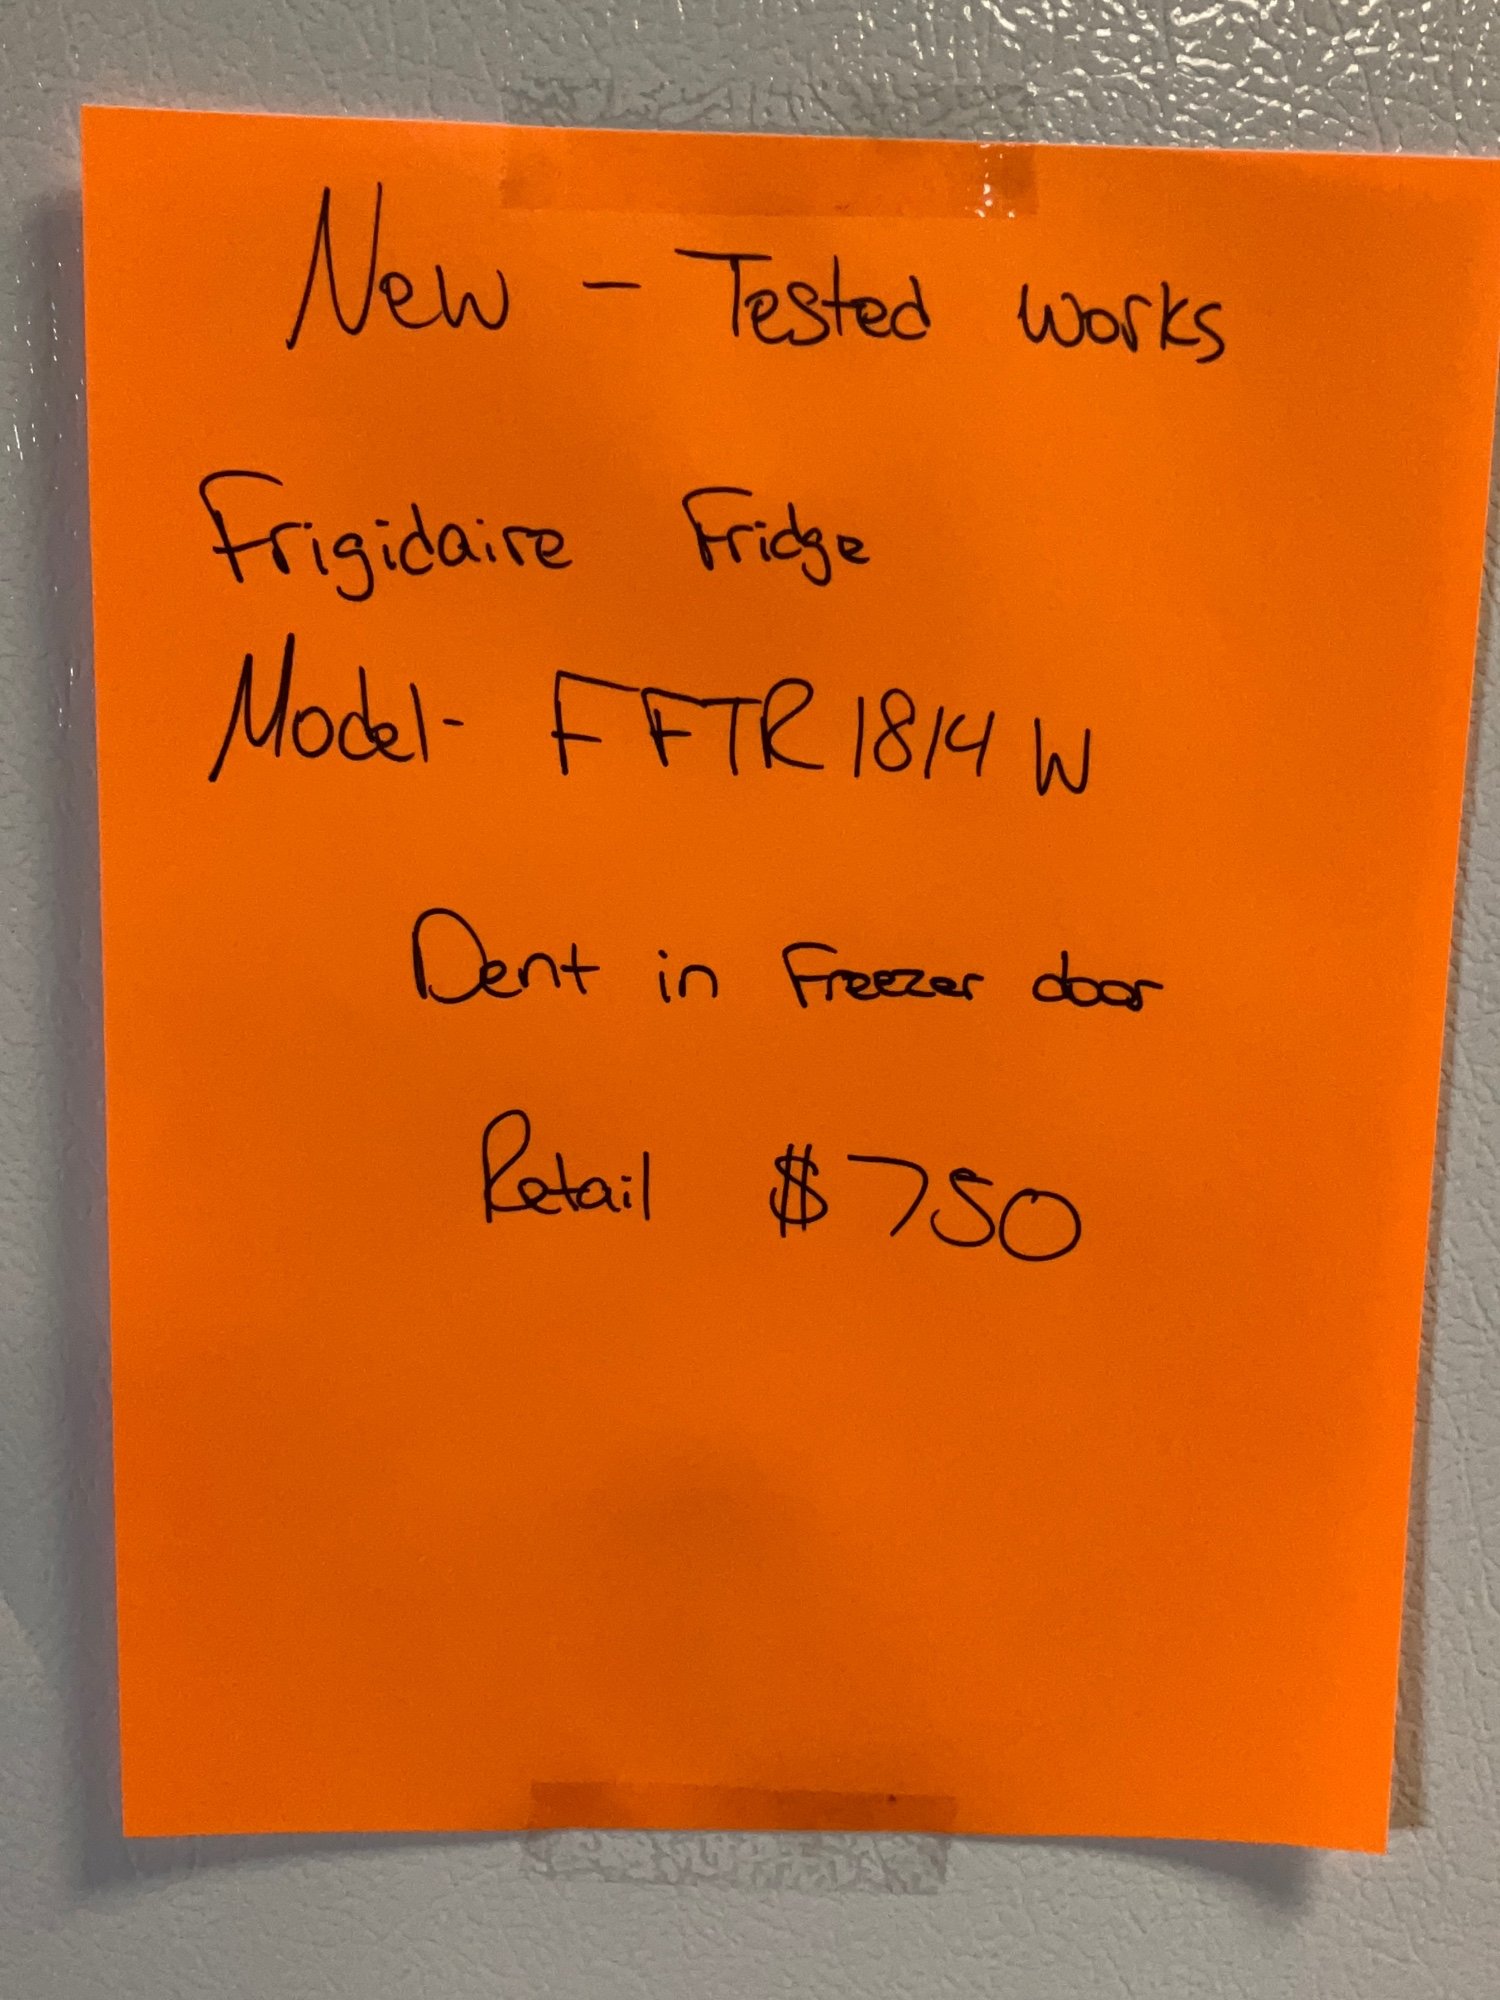 New - Tested works
Frigidaire Fridge
Model- FFTR1814W
Dent in Freezer door
Retail $750